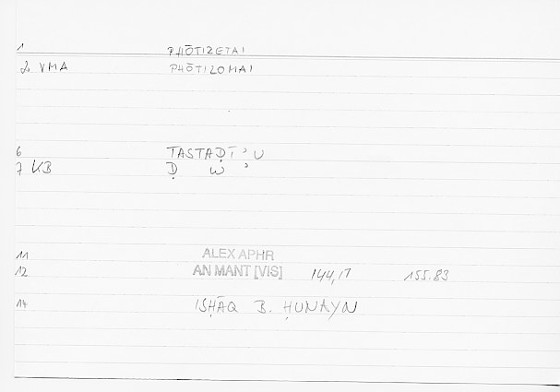 1 PHŌTIZETAI
2 VMA PHŌTIZOMAI
6 TASTAḌĪʾU
7 KB Ḍ W ʾ
11 ALEX APHR
12 AN MANT [VIS] 144,17 155.83
14 ISḤĀQ B. ḤUNAYN